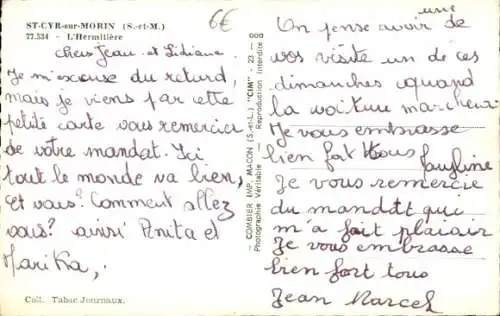 ST-CYR-sur-MORIN (S.-et-M.)
77.534 - L'Hermitière
6€
chers Jean et Lidiane
Je m'excuse du retard,
mais je viens par cette
petite carte vous remercier
de votre mandat. Ici
tout le monde va bien,
et vous? Comment allez
vous? ainsi Anita et
Marika,.
Coll. Tabac Journaux.
COMBIER IMP. MACON (S.-et-L.) "CIM" - 23 - 000
Photographie Véritable - Reproduction Interdite
On pense avoir de une
vos visite un de ces
dimanches quand
la voiture marchera
Je vous embrasse
bien fort tous
Je vous remercie
du mandat qui
m'a fait plaisir
Je vous embrasse
bien fort tous
Jean Marcel